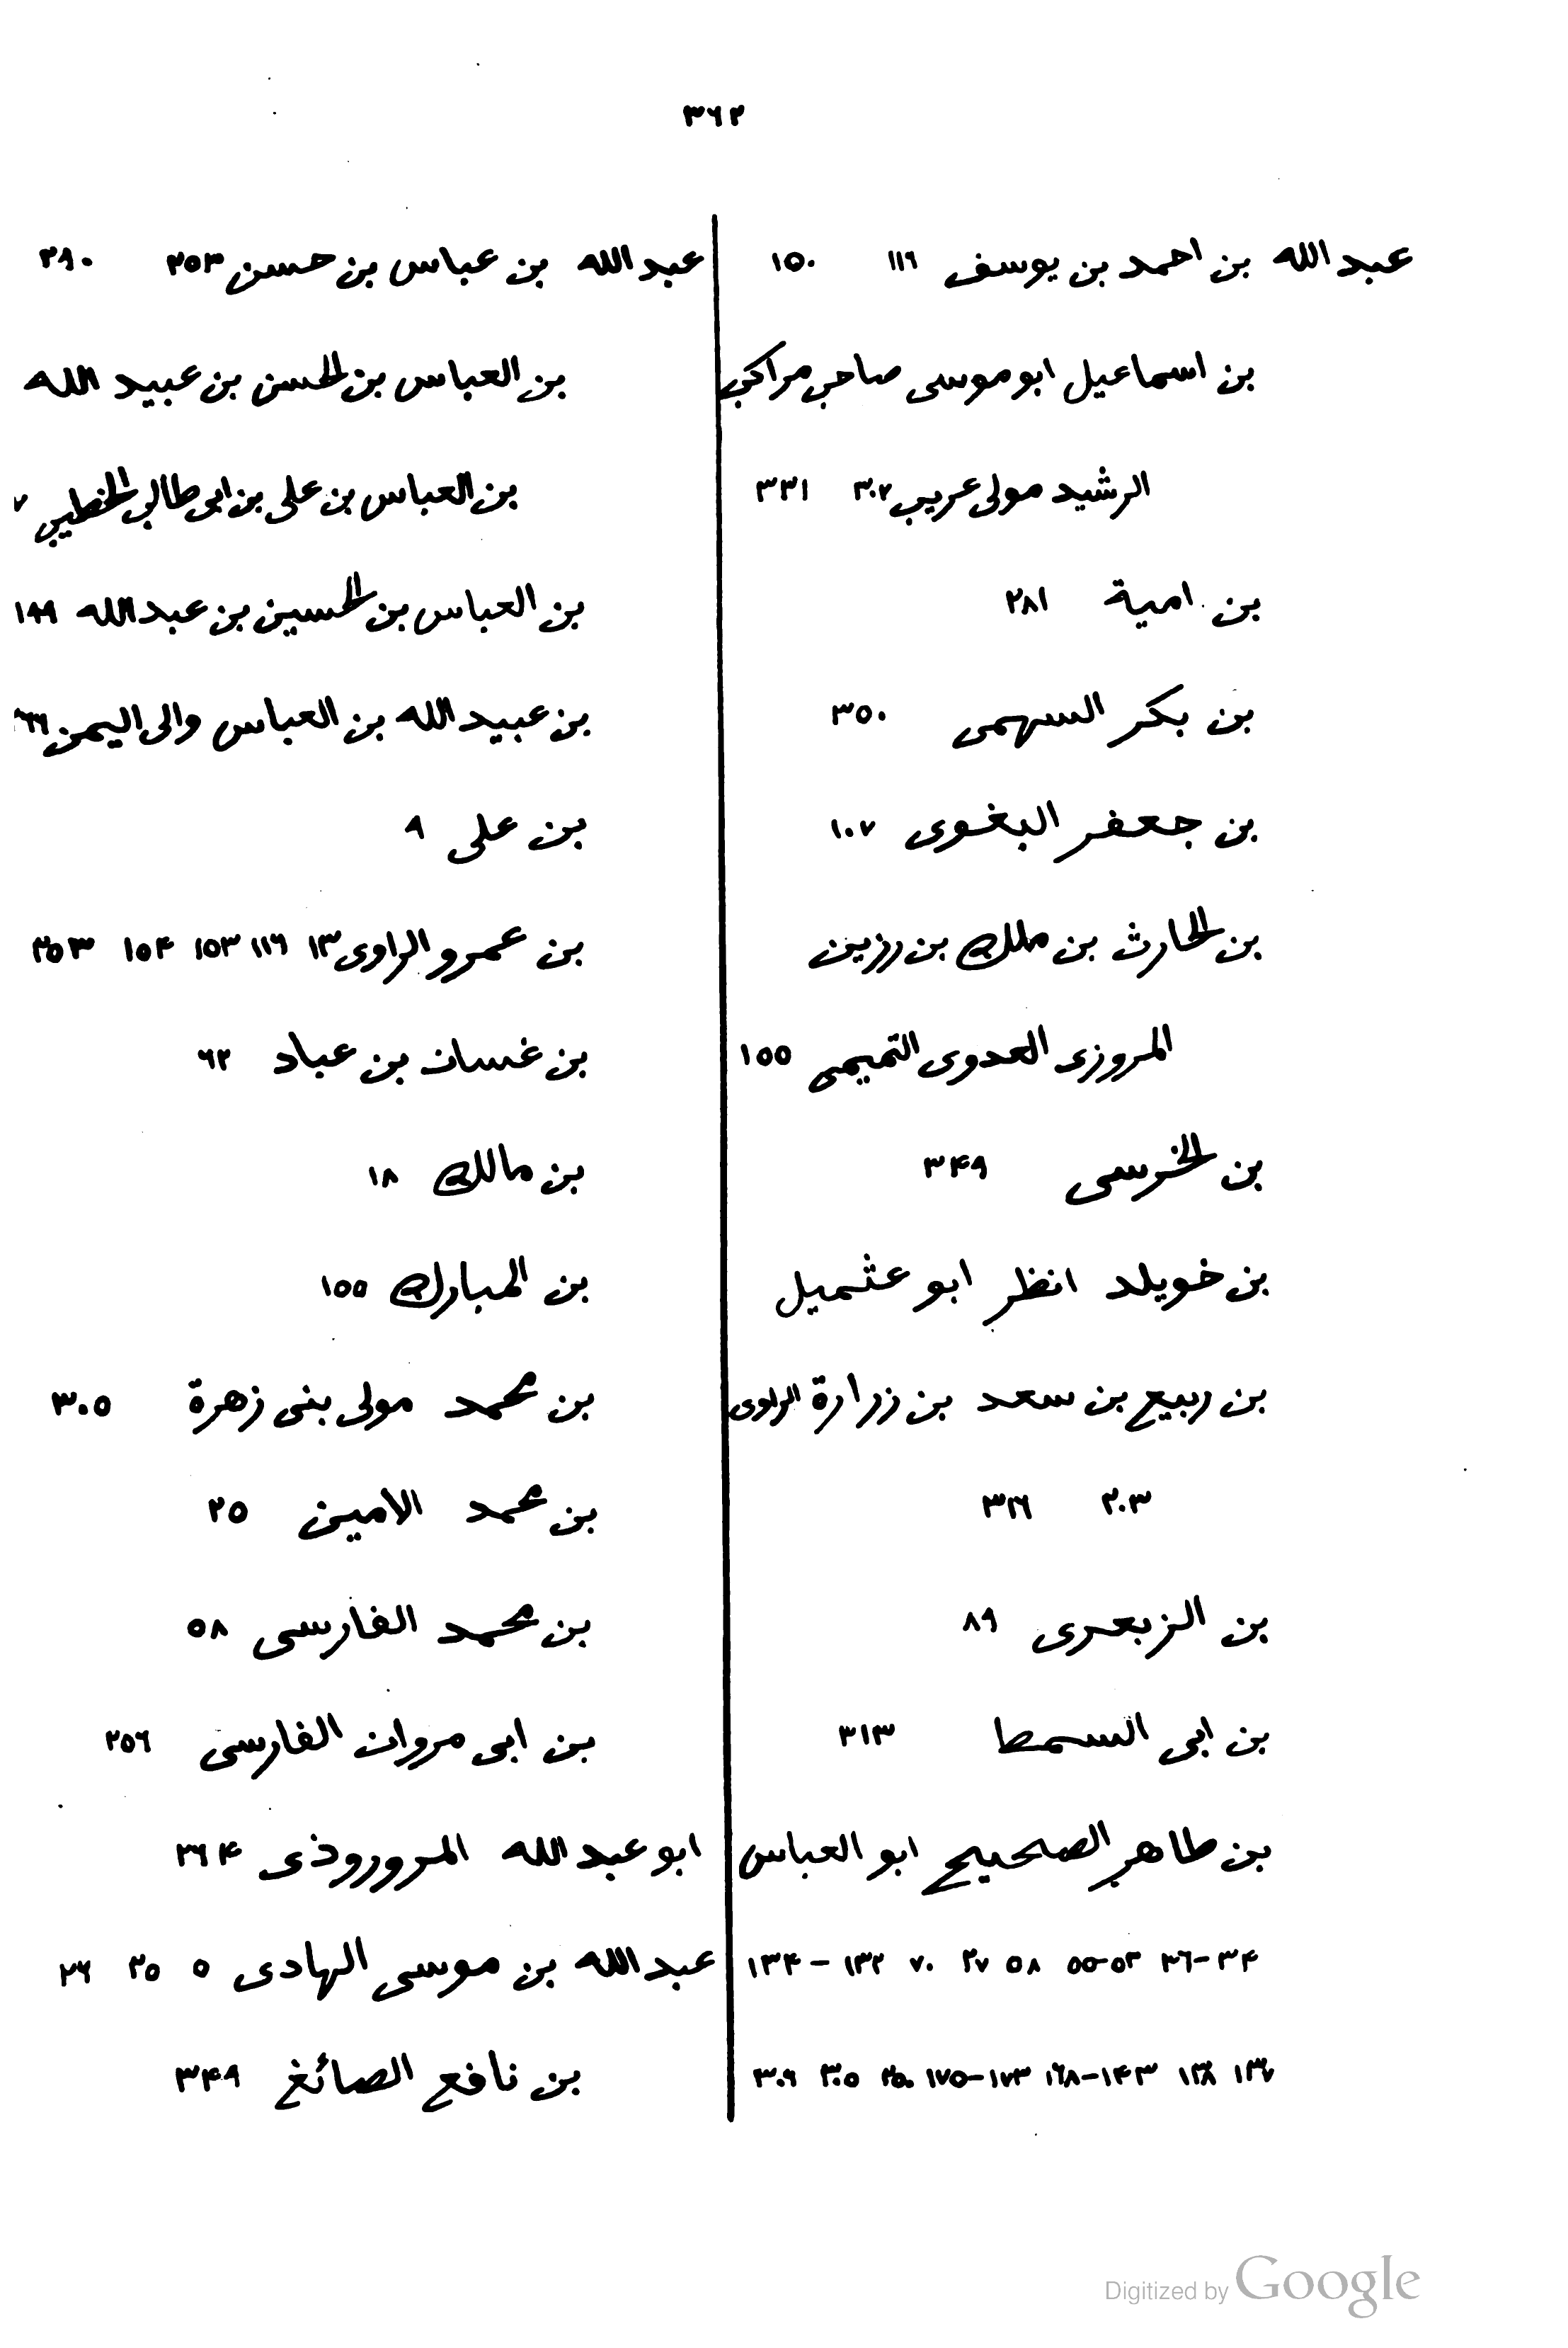 ٣٦٢
عبد الله بن احمد بن يوسف ١١٦ ١٥٠
بن اسماعيل ابو موسى صاحب مراكب
الرشيد مولى عريب ٣٠٧ ٣٣١
بن امية ٢٨١
بن بكر السهمى ٣٥٠
بن جعفر البغوى ١٠٧
بن الحارث بن ملك بن رزين
المروزى العدوى التميمى ١٥٥
بن الخرسى ٣۴٩
بن خويلد انظر ابو عثميل
بن ربيع بن سعد بن زرارة الراوى
٢٠٣ ٣٢٦
بن الزبعرى ٨٩
بن ابى السمط ٣١٣
بن طاهر الصحيح ابو العباس
٣۴-٣٦ ٥٣-٥٥ ٥٨ ٢٧ ٧٠ ١٣٢ - ١٣۴
١٣٧ ١٣٨ ١۴٣-١٦٨ ١٧٣-١٧٥ ٢٥٠ ٣٠٥ ٣٠٦
عبد الله بن عباس بن حسن ٢٥٣ ٢٩٠
بن العباس بن الحسن بن عبيد الله
بن العباس بن على بن ابى طالب الخطيب ٧
بن العباس بن الحسين بن عبد الله ١٩٩
بن عبيد الله بن العباس والى اليمن
بن على ٩
بن عمرو الراوى ١٣ ١١٦ ١٥٣ ١٥۴ ٢٥٣
بن غسان بن عباد ٦٢
بن مالك ١٨
بن المبارك ١٥٥
بن محمد مولى بنى زهرة ٣٠٥
بن محمد الامين ٢٥
بن محمد الفارسى ٥٨
بن ابى مروان الفارسى ٢٥٦
ابو عبد الله المروروذى ٢٦۴
عبد الله بن موسى الهادى ٥ ٢٥ ٢٦
بن نافع الصائغ ٣۴٩
Digitized by Google